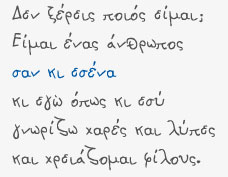 Δεν ξέρεις ποιός είμαι;
Είμαι ένας άνθρωπος
σαν κι εσένα
κι εγώ όπως κι εσύ
γνωρίζω χαρές και λύπες
και χρειάζομαι φίλους.